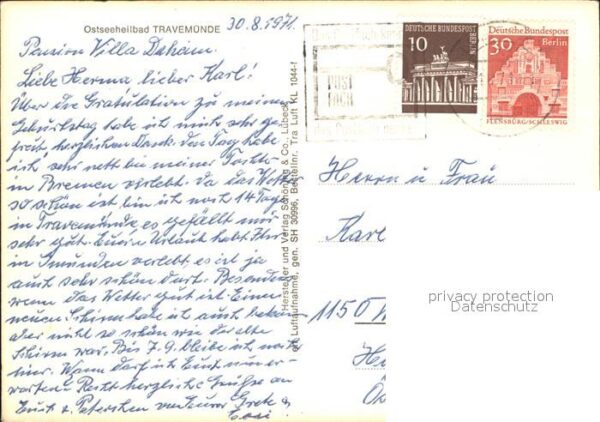 Ostseeheilbad TRAVEMÜNDE
30.8.1971.
Pension Villa Daheim.
Liebe Herma lieber Karl!
Über die Gratulation zu meinem
Geburtstag habe ich mich sehr ge-
freut herzlichen Dank. Den Tag habe
ich sehr nett bei meiner Tochter
in Bremen verlebt. Da das Wetter
so schön ist bin ich noch 14 Tage
in Travemünde, es gefällt mir
sehr gut. Euern Urlaub habt Ihr
in Gmunden verlebt es ist ja
auch sehr schön dort. Besonders
wenn das Wetter gut ist. Einen
neuen Schirm habe ich auch
aber nicht so schön wie der alte
Schirm war. Bis 7.9. bleibe ich noch
hier. Wann darf ich Euch
warten? Recht herzliche Grüße an
Euch u. Peterchen von Eurer Grete u.
Hersteller und Verlag Schöning & Co., Lübeck
Luftaufnahme, gen. SH 30996, Bestellnr. Tra Luft KL 1044-f
POST
FACH
DEUTSCHE BUNDESPOST
BERLIN
10
Deutsche Bundespost
30 Berlin
FLENSBURG/SCHLESWIG
Herrn u Frau
Karl
1150 W
privacy protection
Datenschutz
He
Ös